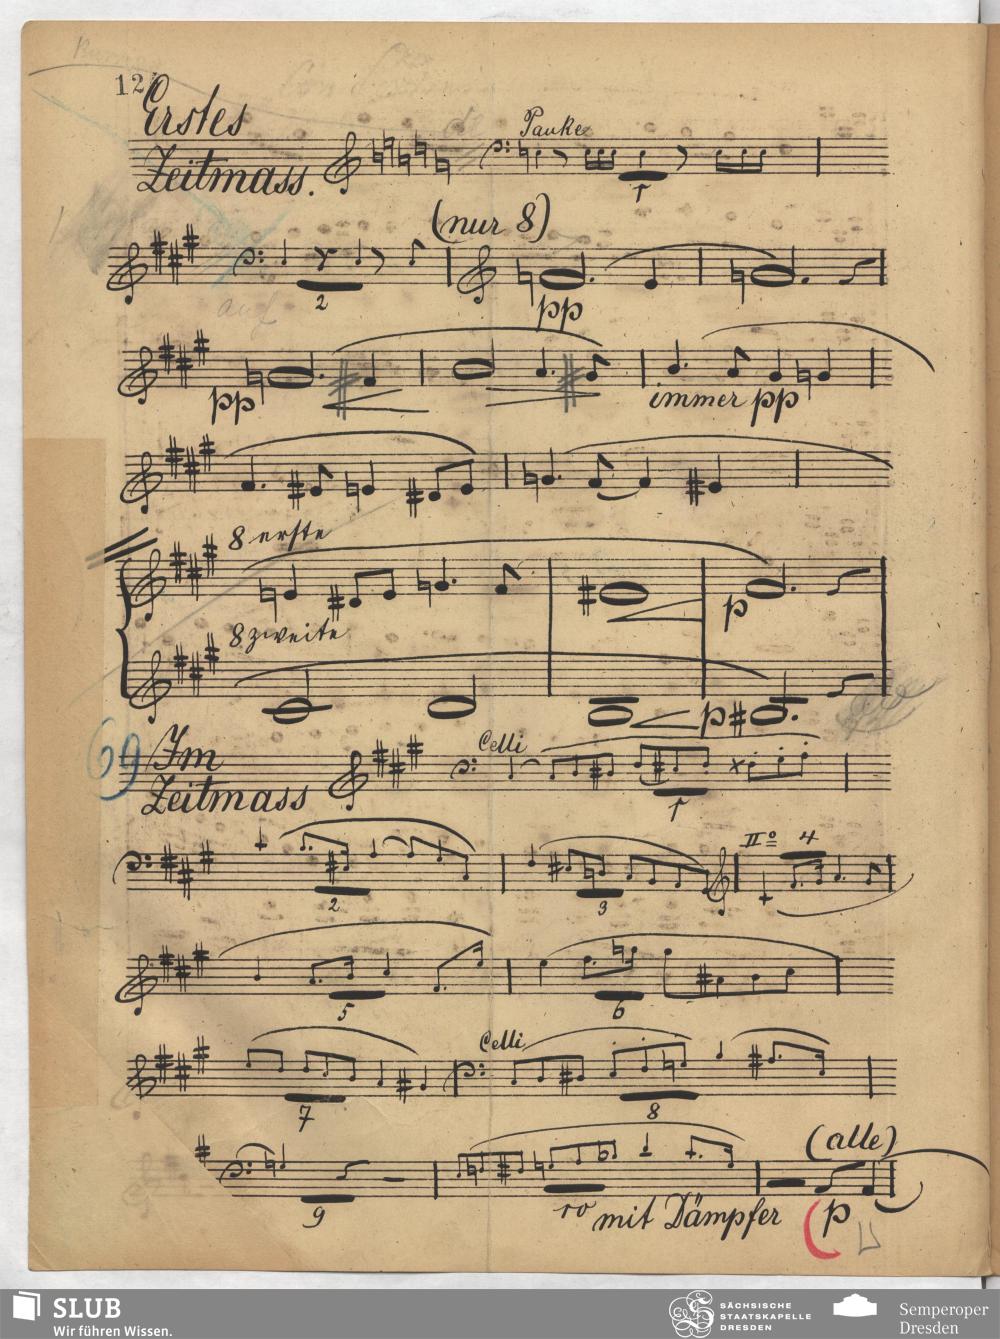 12
Erstes
Zeitmass.
Pauke
1
(nur 8)
2
auf
pp
pp
immer pp
8 erste
p
8 zweite
p
69
Im
Zeitmass
Celli
1
2
3
IIº
4
5
6
Celli
7
8
(alle)
9
10
mit Dämpfer
p
SLUB
Wir führen Wissen.
SÄCHSISCHE
STAATSKAPELLE
DRESDEN
Semperoper
Dresden